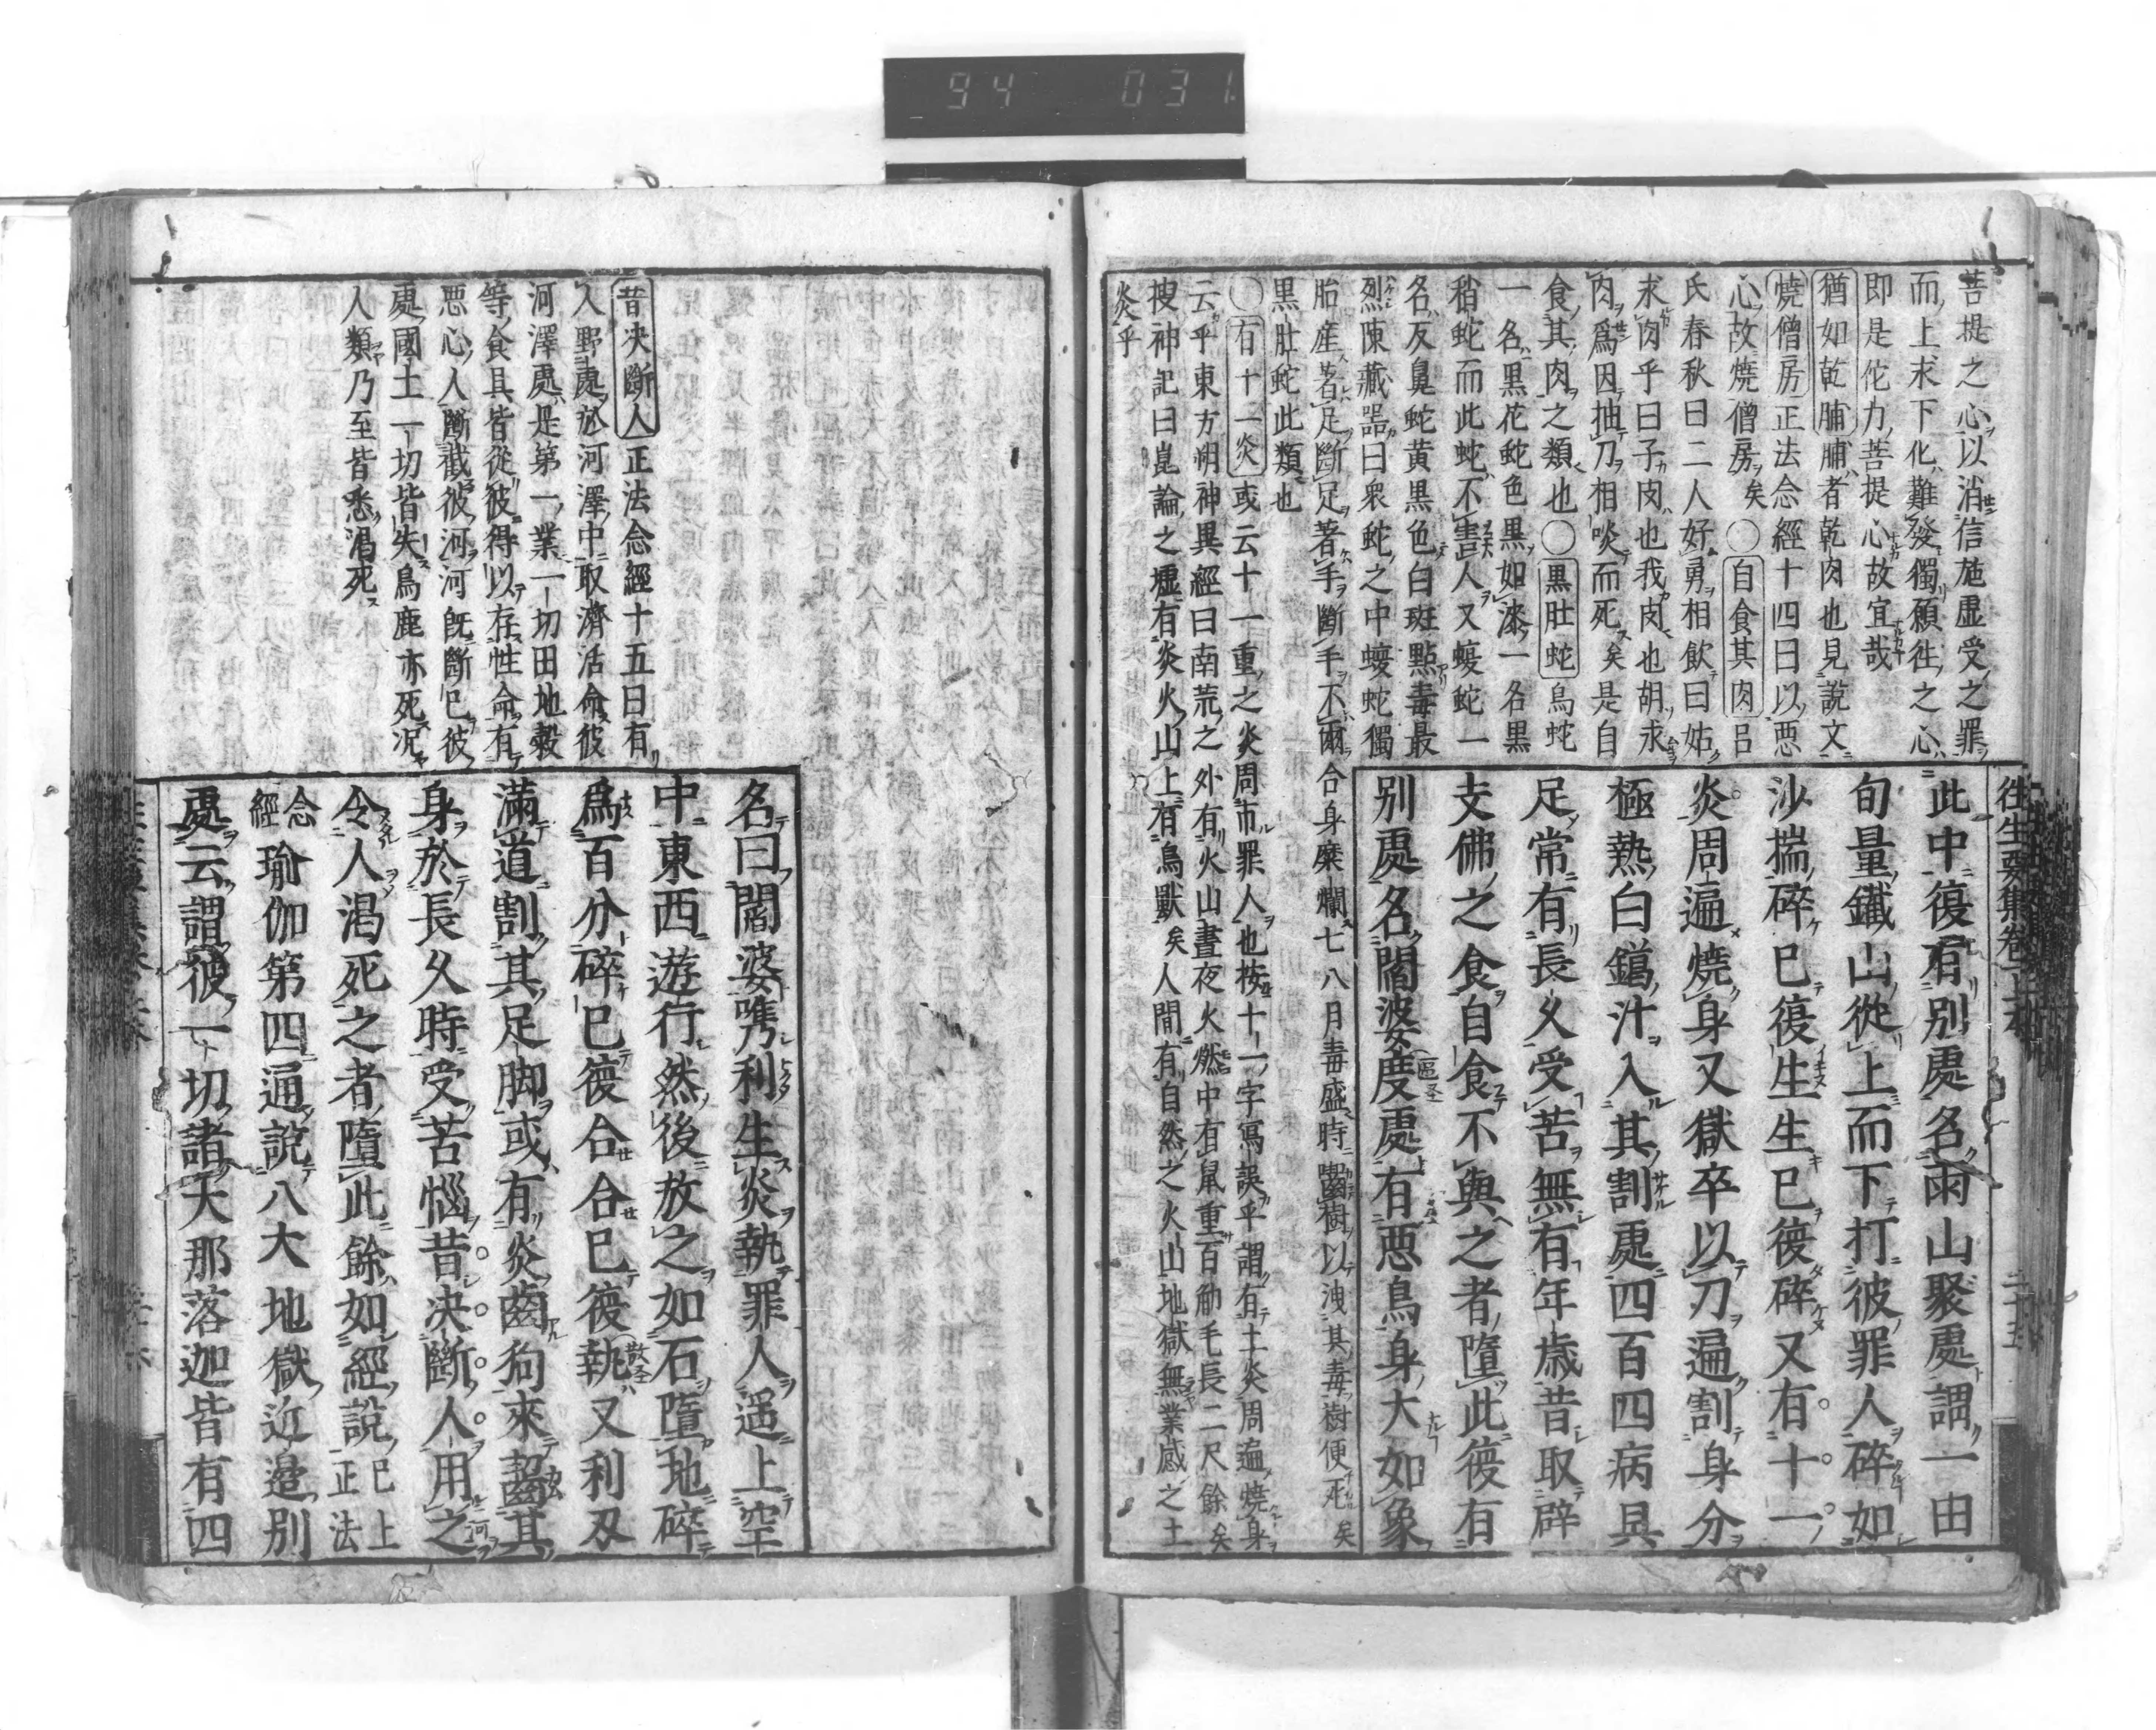 94 031
菩提之心以消信施虚受之罪
而上求下化難發獨願往之心
即是佗力菩提心故宜哉
猶如乾脯脯者乾肉也見說文
燒僧房正法念經十四曰以悪
心故燒僧房矣〇自食其肉呂
氏春秋曰二人好勇相飲曰姑
求肉乎曰子肉也我肉也胡求
肉爲因抽刀相啖而死矣是自
食其肉之類也〇黒肚蛇烏蛇
一名黒花蛇色黒如漆一名黒
稍蛇而此蛇不害人又蝮蛇一
名反鼻蛇黄黒色白斑點毒最
烈陳藏器曰衆蛇之中蝮蛇獨
胎産著足斷足著手斷手不爾合身糜爛七八月毒盛時齧樹以洩其毒樹便死矣
黒肚蛇此類也
〇有十一炎或云十一重之炎周帀罪人也按十一字寫誤乎謂有土炎周遍燒身
云乎東方朔神異經曰南荒之外有火山晝夜火燃中有鼠重百觔毛長二尺餘矣
搜神記曰崑論之墟有炎火山上有鳥獸矣人間有自然之火山地獄無業感之土
炎乎
往生要集卷上本
二十五
此中復有別處名雨山聚處謂一由
旬量鐵山從上而下打彼罪人碎如
沙揣碎已復生生已復碎又有十一
炎周遍燒身又獄卒以刀遍割身分
極熱白鑞汁入其割處四百四病具
足常有長久受苦無有年歳昔取辟
支佛之食自食不與之者墮此復有
別處名閻婆度處有悪鳥身大如象
昔决斷人正法念經十五曰有
人野處於河澤中取濟活命彼
河澤處是第一業一切田地穀
等食具皆從彼得以存性命有
悪心人斷截彼河河既斷已彼
處國土一切皆失鳥鹿亦死况
人類乃至皆悉渇死
名曰閻婆嘴利生炎執罪人遥上空
中東西遊行然後放之如石墮地碎
爲百分碎已復合合已復執又利刃
滿道割其足脚或有炎齒狗來齧其
身於長久時受苦惱昔决斷人用之
令人渇死之者墮此餘如經說已上正法
念經瑜伽第四通說八大地獄近邊別
處云謂彼一切諸大那落迦皆有四